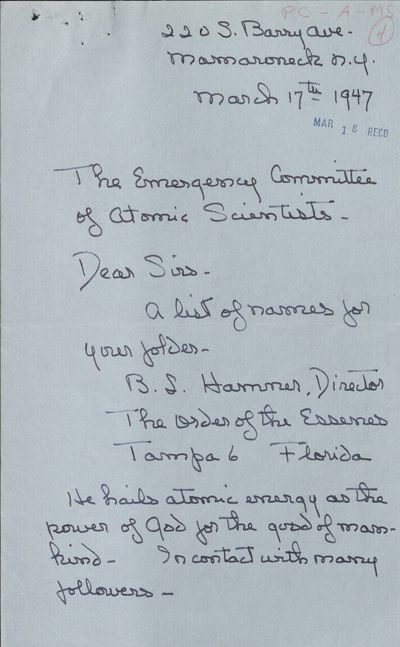 PC-A-MS
4
220 S. Barry Ave.
Mamaroneck N.Y.
March 17th 1947
MAR 18 RECD
The Emergency Committee
of Atomic Scientists -
Dear Sirs -
A list of names for
your folder -
B. L. Hammer, Director
The Order of the Essenes
Tampa 6 Florida
He hails atomic energy as the
power of God for the good of man-
kind - In contact with many
followers -